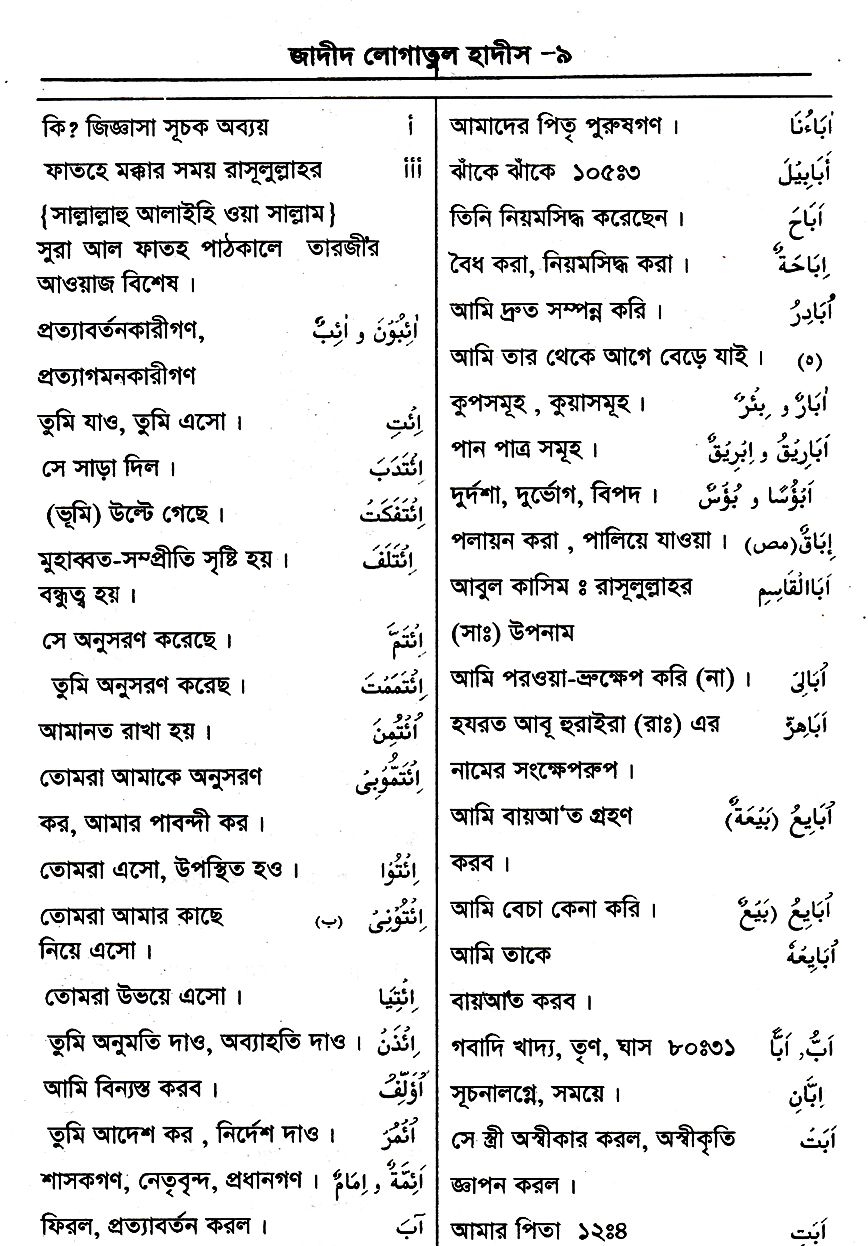 জাদীদ লোগাতুল হাদীস -৯
কি? জিজ্ঞাসা সূচক অব্যয় أ
ফাতহে মক্কার সময় রাসূলুল্লাহর أأأ
{সাল্লাল্লাহু আলাইহি ওয়া সাল্লাম}
সুরা আল ফাতহ পাঠকালে তারজী'র
আওয়াজ বিশেষ ।
প্রত্যাবর্তনকারীগণ, اٰئِبُوْنَ و اٰئِبٌ
প্রত্যাগমনকারীগণ
তুমি যাও, তুমি এসো । اِئْتِ
সে সাড়া দিল । اِئْتَدَبَ
(ভূমি) উল্টে গেছে । اِئْتَفَكَتْ
মুহাব্বত-সম্প্রীতি সৃষ্টি হয় । اِئْتَلَفَ
বন্ধুত্ব হয় ।
সে অনুসরণ করেছে । اِئْتَمَّ
তুমি অনুসরণ করেছ । اِئْتَمَمْتَ
আমানত রাখা হয় । اُئْتُمِنَ
তোমরা আমাকে অনুসরণ اِئْتَمُّوْبِىْ
কর, আমার পাবন্দী কর ।
তোমরা এসো, উপস্থিত হও । اِئْتُوْا
তোমরা আমার কাছে (ب) اِئْتُوْنِىْ
নিয়ে এসো ।
তোমরা উভয়ে এসো । اِئْتِيَا
তুমি অনুমতি দাও, অব্যাহতি দাও । اِئْذَنْ
আমি বিন্যস্ত করব । اُؤَلِّفُ
তুমি আদেশ কর , নির্দেশ দাও । اُئْمُرْ
শাসকগণ, নেতৃবৃন্দ, প্রধানগণ । اَئِمَّةٌ و اِمَامٌ
ফিরল, প্রত্যাবর্তন করল । آبَ
আমাদের পিতৃ পুরুষগণ । اٰبَاءُنَا
ঝাঁকে ঝাঁকে ১০৫ঃ৩ أَبَابِيْلَ
তিনি নিয়মসিদ্ধ করেছেন । اَبَاحَ
বৈধ করা, নিয়মসিদ্ধ করা । اِبَاحَةٌ
আমি দ্রুত সম্পন্ন করি । اُبَادِرُ
আমি তার থেকে আগে বেড়ে যাই । (ه)
কুপসমূহ , কুয়াসমূহ । اٰبَارٌ و بِئْرٌ
পান পাত্র সমূহ । اَبَارِيْقُ و اِبْرِيْقٌ
দুর্দশা, দুর্ভোগ, বিপদ । اَبْؤُسًا و بُؤْسٌ
পলায়ন করা , পালিয়ে যাওয়া । اِبَاقٌ(مص)
আবুল কাসিম ঃ রাসূলুল্লাহর اَبَاالْقَاسِمِ
(সাঃ) উপনাম
আমি পরওয়া-ভ্রুক্ষেপ করি (না) । اُبَالِىَ
হযরত আবূ হুরাইরা (রাঃ) এর اَبَاهِرّ
নামের সংক্ষেপরুপ ।
আমি বায়আ'ত গ্রহণ اُبَايِعُ (بَيْعَةٌ)
করব ।
আমি বেচা কেনা করি । اُبَايِعُ (بَيْعٌ
আমি তাকে اُبَايِعُهٗ
বায়আ'ত করব ।
গবাদি খাদ্য, তৃণ, ঘাস ৮০ঃ৩১ اَبٌّ, اَبًّا
সূচনালগ্নে, সময়ে । اِبَّانِ
সে স্ত্রী অস্বীকার করল, অস্বীকৃতি اَبَتْ
জ্ঞাপন করল ।
আমার পিতা ১২ঃ৪ اَبَتِ